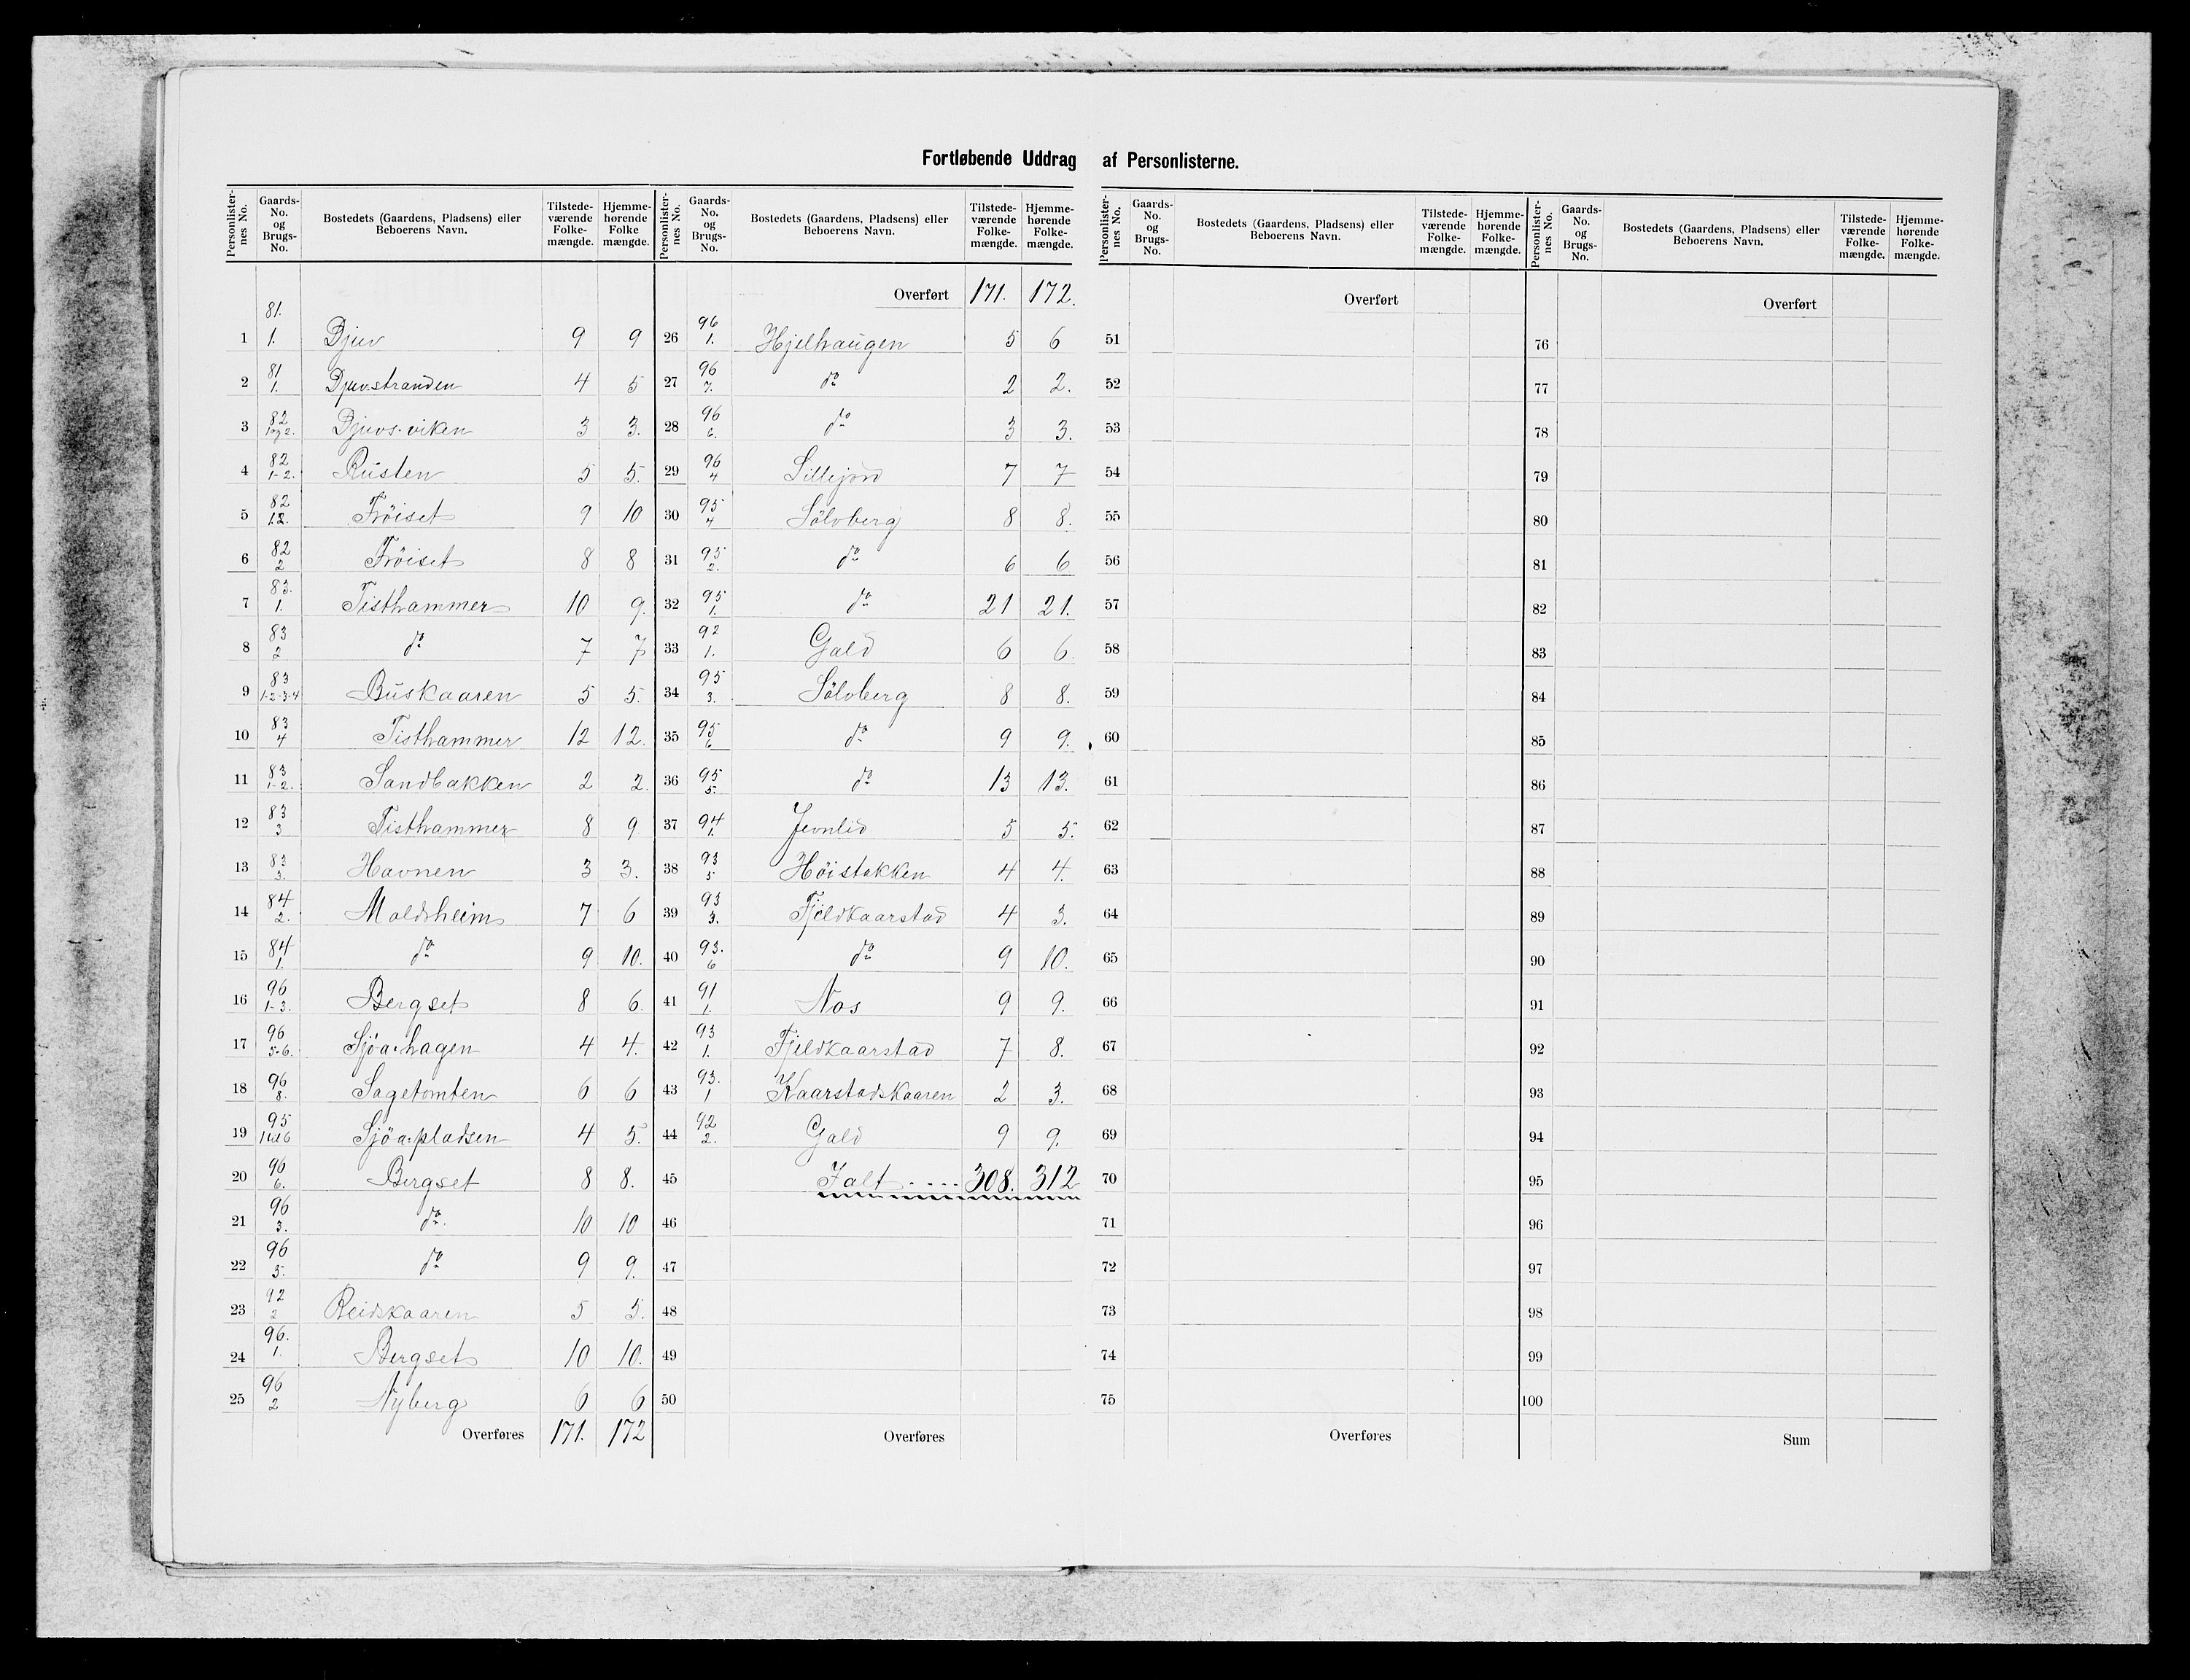 Fortløbende Uddrag af Personlisterne.
Personlister-nes No. | Gaards-No. og Brugs-No. | Bostedets (Gaardens, Pladsens) eller Beboerens Navn. | Tilstede-værende Folke-mængde. | Hjemme-hørende Folke mængde.
1 | 81. 1. | Djuv | 9 | 9
2 | 81 1. | Djuvstranden | 4 | 5
3 | 82 1og2. | Djuvs-viken | 3 | 3.
4 | 82 1-2. | Rusten | 5 | 5.
5 | 82 1.2. | Fröiset | 9 | 10
6 | 82 2 | Fröiset | 8 | 8
7 | 83. 1. | Tisthammer | 10 | 9.
8 | 83 2 | do | 7 | 7
9 | 83 1-2-3-4 | Buskaaren | 5 | 5.
10 | 83 4 | Tisthammer | 12 | 12.
11 | 83 1-2. | Sandbakken | 2 | 2.
12 | 83 3 | Tisthammer | 8 | 9
13 | 83 3. | Havnen | 3 | 3.
14 | 84 2. | Moldsheim | 7 | 6
15 | 84 1. | do | 9 | 10.
16 | 96 1-3. | Bergset | 8 | 6
17 | 96 5-6. | Sjöa-hagen | 4 | 4.
18 | 96 8. | Sagetomten | 6 | 6
19 | 95 1til6 | Sjöa-pladsen | 4 | 5.
20 | 96 6. | Bergset | 8 | 8.
21 | 96 3. | do. | 10 | 10
22 | 96 5. | do | 9 | 9.
23 | 92 2 | Reidskaaren | 5 | 5.
24 | 96. 1. | Bergset | 10 | 10.
25 | 96 2 | Nyberg | 6 | 6
Overføres | 171. | 172
Personlister-nes No. | Gaards-No. og Brugs-No. | Bostedets (Gaardens, Pladsens) eller Beboerens Navn. | Tilstede-værende Folke-mængde. | Hjemme-hørende Folke-mængde.
Overført | 171. | 172.
26 | 96 1. | Hjelhaugen | 5 | 6
27 | 96 7. | do | 2 | 2.
28 | 96 6. | do | 3 | 3.
29 | 96 4 | Lillejord | 7 | 7
30 | 95 4 | Sölvberg | 8 | 8.
31 | 95 2. | do | 6 | 6
32 | 95 1. | do | 21 | 21.
33 | 92 1. | Gald | 6 | 6.
34 | 95 3. | Sölvberg | 8 | 8.
35 | 95 6 | do | 9 | 9.
36 | 95 5. | do | 13 | 13.
37 | 94 1. | Jevnlid | 5 | 5.
38 | 93 5 | Höistakken | 4 | 4.
39 | 93 3. | Fjeldkaarstad | 4 | 3.
40 | 93. 6 | do | 9 | 10.
41 | 91 1. | Nos | 9 | 9.
42 | 93 1. | Fjeldkaarstad | 7 | 8.
43 | 93. 1 | Kaarstadskaaren | 2 | 3.
44 | 92 2. | Gald | 9 | 9.
45 | Ialt .... | 308. | 312
46
47
48
49
50
Overføres
Personlister-nes No. | Gaards-No. og Brugs-No. | Bostedets (Gaardens, Pladsens) eller Beboerens Navn. | Tilstede-værende Folke-mængde. | Hjemme-hørende Folke-mængde.
Overført
51
52
53
54
55
56
57
58
59
60
61
62
63
64
65
66
67
68
69
70
71
72
73
74
75
Overføres
Personlister-nes No. | Gaards-No. og Brugs-No. | Bostedets (Gaardens, Pladsens) eller Beboerens Navn. | Tilstede-værende Folke-mængde. | Hjemme-hørende Folke-mængde.
Overført
76
77
78
79
80
81
82
83
84
85
86
87
88
89
90
91
92
93
94
95
96
97
98
99
100
Sum